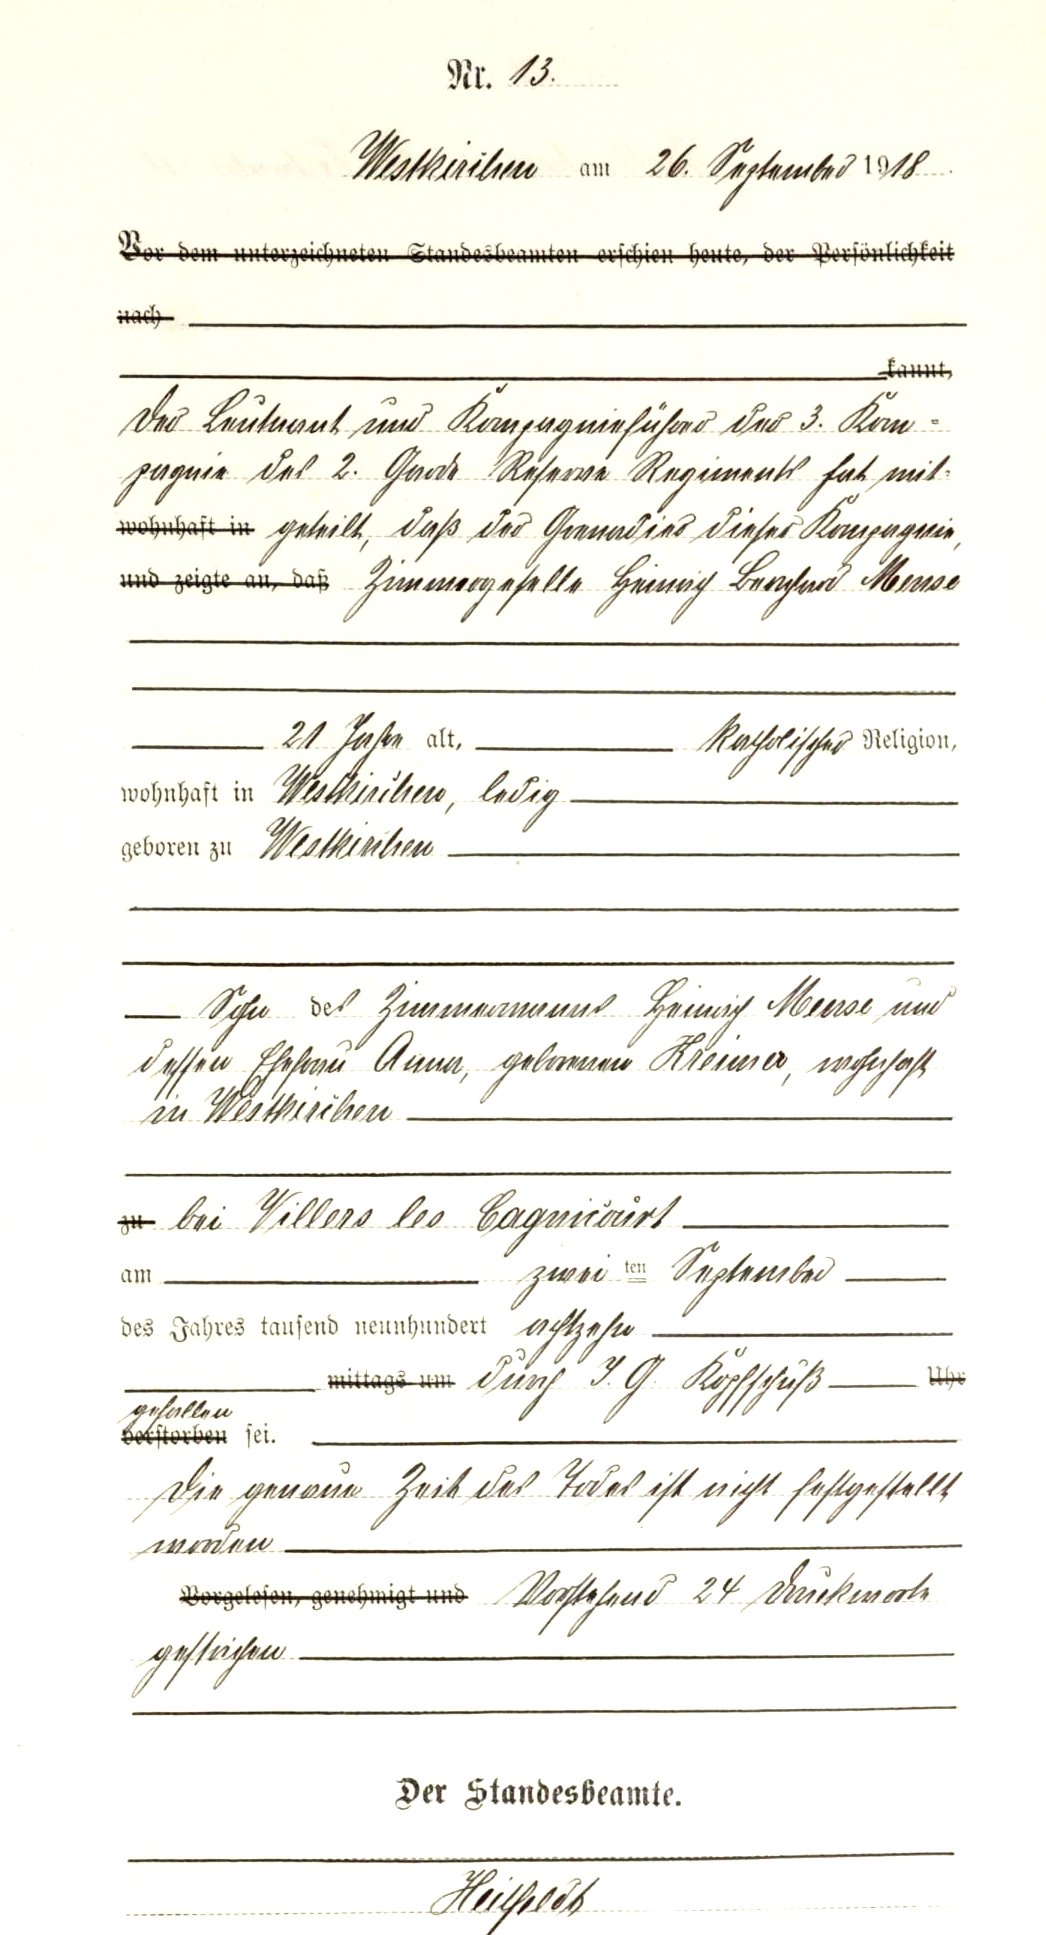 Nr. 13.
Westkirchen am 26. September 1918
Vor dem unterzeichneten Standesbeamten erschien heute, der Persönlichkeit
nach
kannt,
Der Leutnant und Kompagnieführer der 3. Kom-
pagnie des 2. Garde Reserve Regiments hat mit-
wohnhaft in geteilt, daß der Grenadier dieser Kompagnie,
und zeigte an, daß Zimmergeselle Heinrich Bernhard Mense
21 Jahre alt, katholischer Religion,
wohnhaft in Westkirchen, ledig
geboren zu Westkirchen
Sohn des Zimmermanns Heinrich Mense und
dessen Ehefrau Anna, geborenen Kreimer, wohnhaft
in Westkirchen
zu bei Villers les Cagnicourt
am zwei ten September
des Jahres tausend neunhundert achtzehn
mittags um durch I. G. Kopfschuß Uhr
gefallen
verstorben sei.
Die genaue Zeit des Todes ist nicht festgestellt
worden
Vorgelesen, genehmigt und Vorstehend 24 Druckworte
gestrichen
Der Standesbeamte.